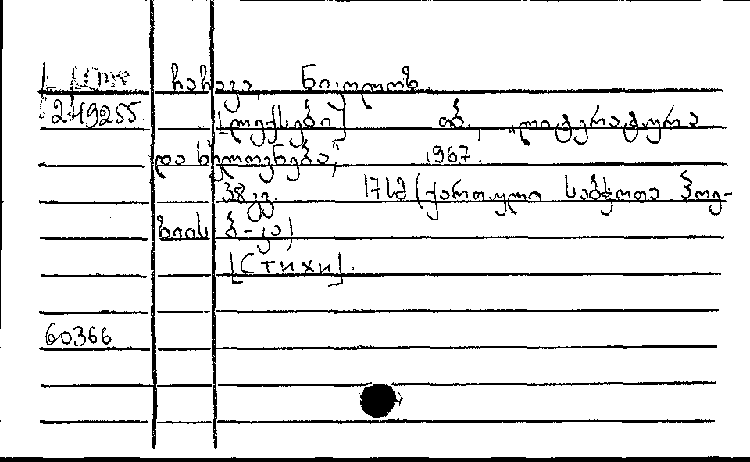 ჩარკვ. ნიკოლოზ
249255 [ლექსები] თბ., „ლიტერატურა
და ხელოვნება," 1967.
38გვ. 17სმ (ქართული საბჭოთა პოე-
ზიის ბ-კა)
[Стихи].
60.366